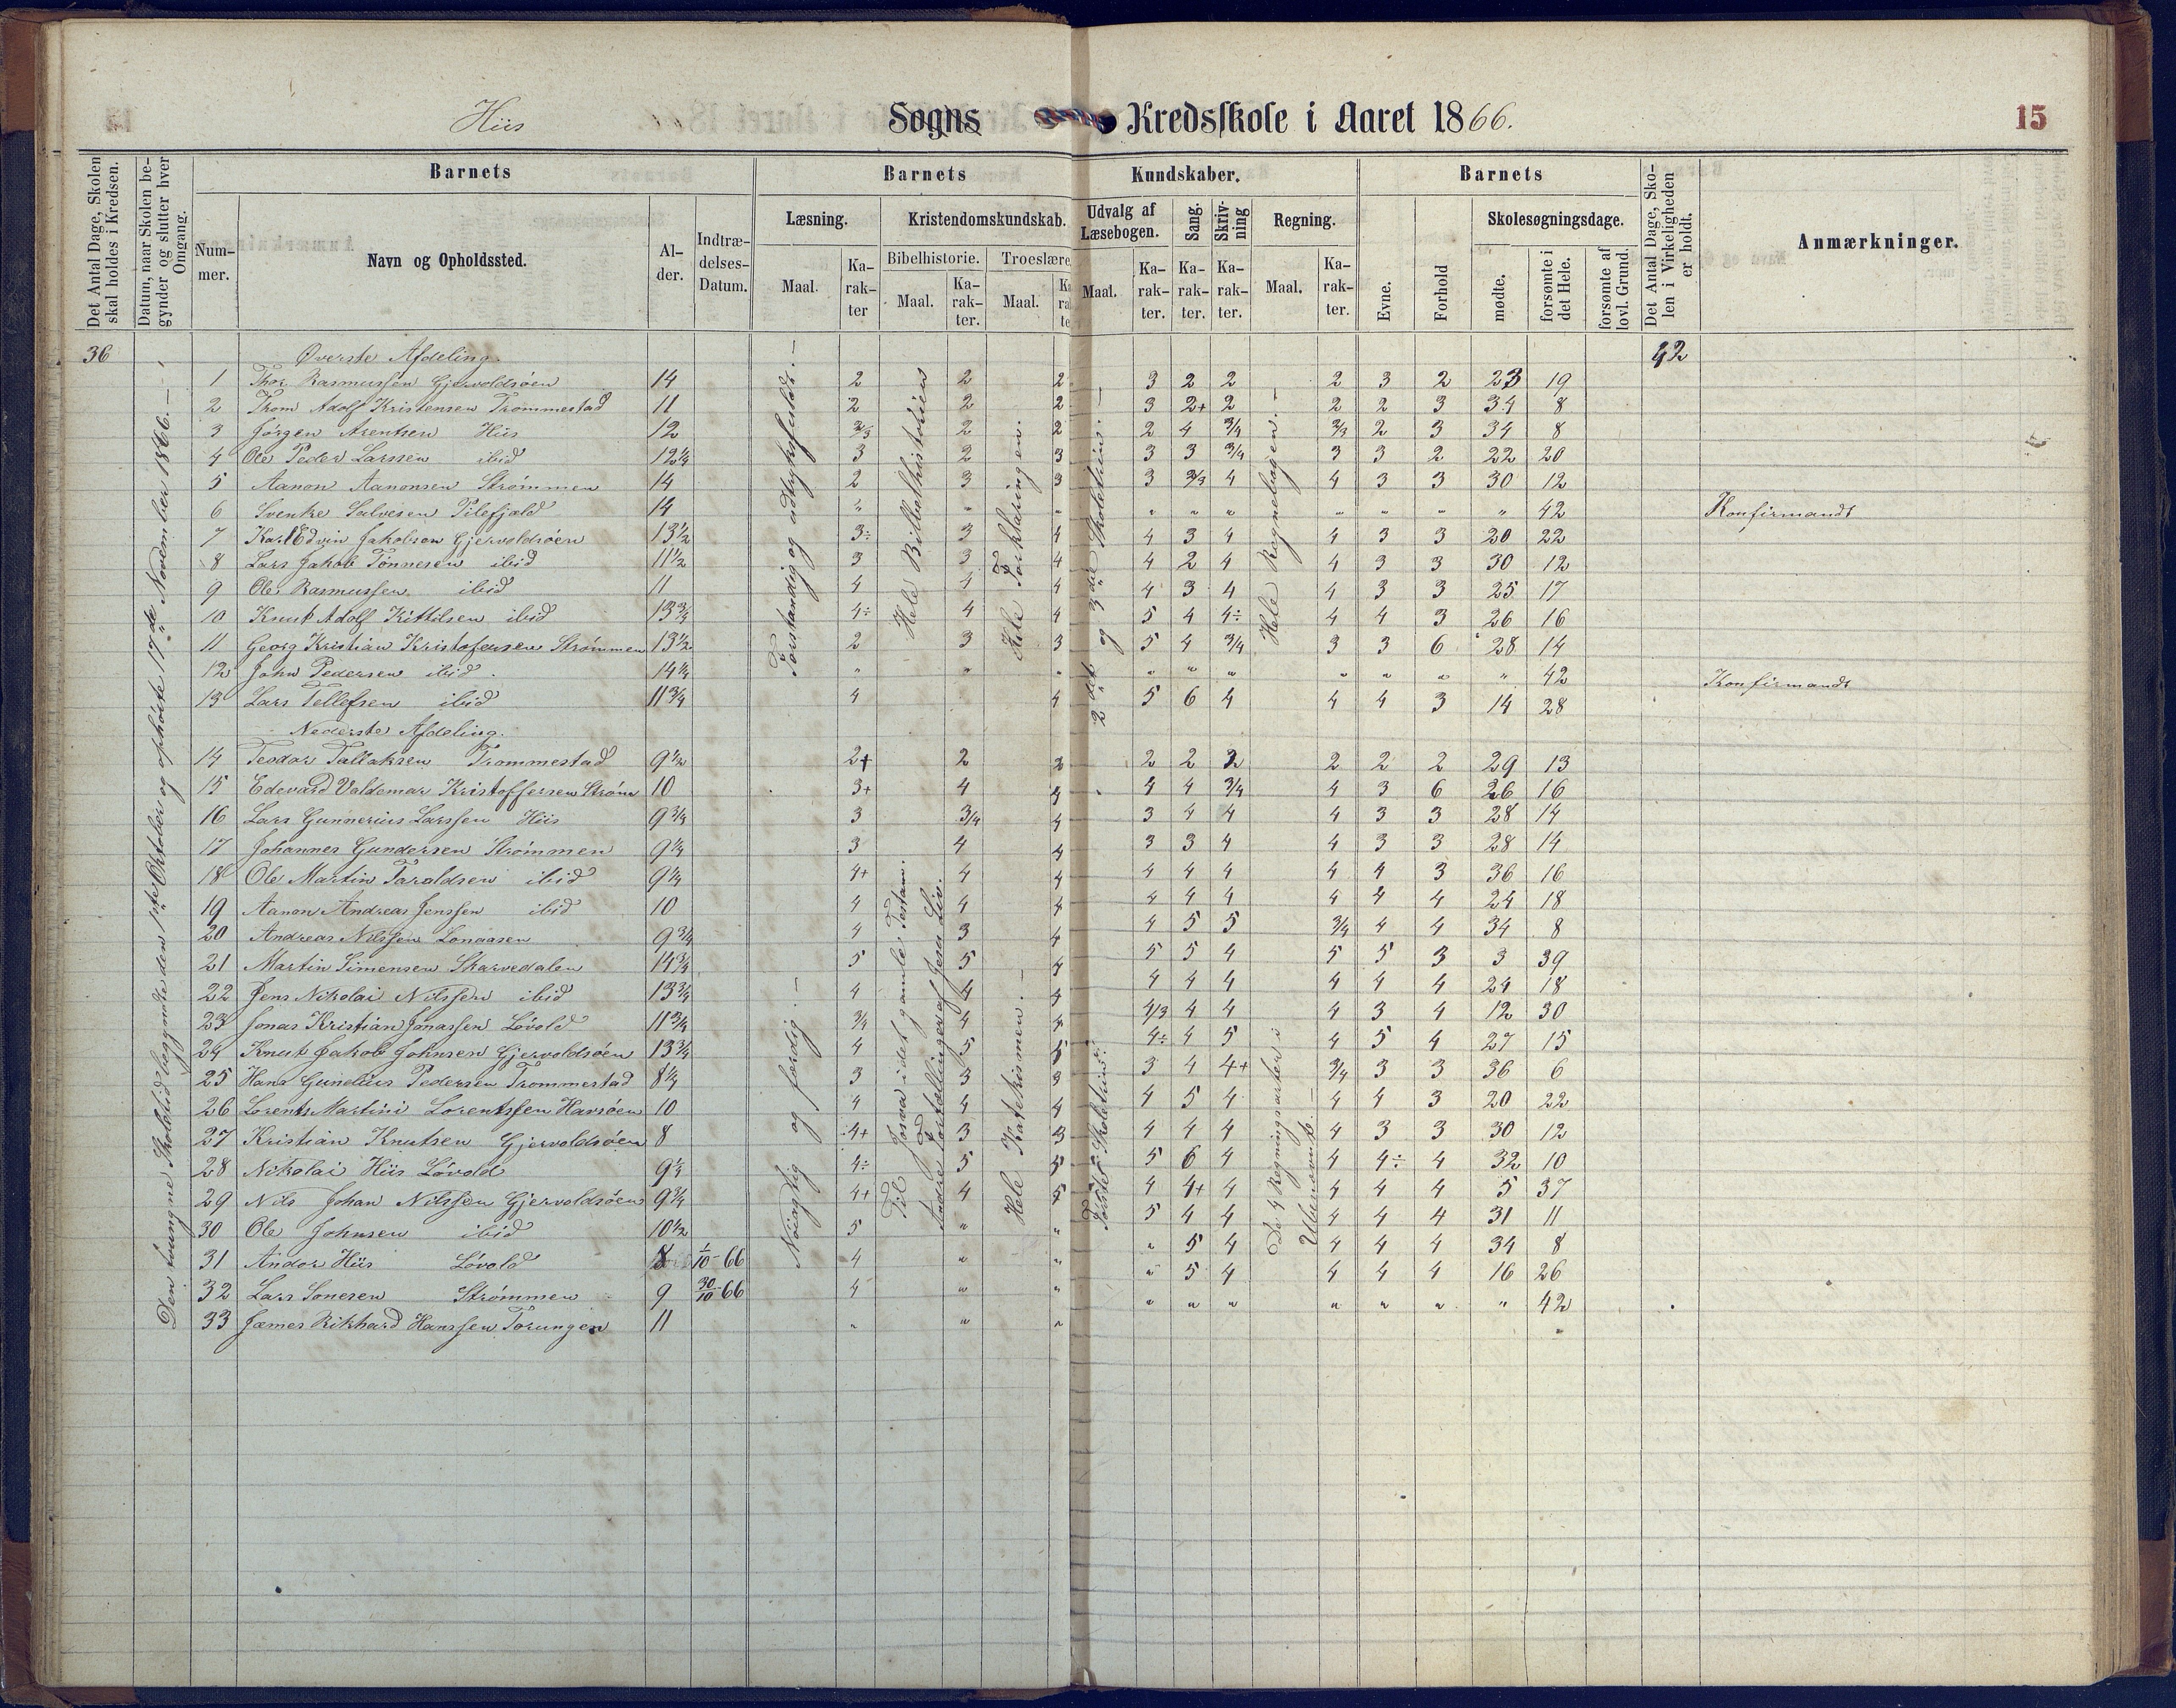 Hiis Sogns Kredsskole i Aaret 1866. 15
Det Antal Dage, Skolen skal holdes i Kredsen.
Datum, naar Skolen begynder og slutter hver Omgang.
Barnets
Nummer.
Navn og Opholdssted.
Alder.
Indtrædelses-Datum.
Barnets Kundskaber.
Læsning. Maal. Karakter
Kristendomskundskab.
Bibelhistorie. Maal. Karakter.
Troeslære Maal.
Udvalg af Læsebogen. Maal. Karakter.
Sang. Karakter.
Skrivning Karakter.
Regning. Maal. Karakter.
Barnets
Evne.
Forhold
Skolesøgningsdage.
mødte.
forsømte i det Hele.
forsømte af lovl. Grund.
Det Antal Dage, Skolen i Virkeligheden er holdt.
Anmærkninger.
36 Øverste Afdeling. 42
Den tvungne Skoletid begyndte den 1ste Oktober og ophørte 17de November 1866.
Forstandig og udtryksfuldt.
Hele Bibelhistorien
Hele Forklaringen.
2det og 3die Skoletrin.
Hele Regnebogen.
1 Thor Rasmussen Gjervoldsøen 14 2 2 2 3 2 2 2 3 2 23 19
2 Thom Adolf Kristensen Trommestad 11 2 2 2 3 2+ 2 2 2 3 34 8
3 Jørgen Arentsen Hiis 12 2/3 2 2 2 4 3/4 2/3 2 3 34 8
4 Ole Peder Larssen ibid 12¼ 3 2 3 3 3 3/4 3 3 2 22 20
5 Aanon Aanonsen Strømmen 14 2 3 3 3 2/3 4 4 3 3 30 12
6 Svenke Salvesen Pilefjæld 14 " " " " " " " " " " 42 Konfirmandt
7 Karl Edvin Jakobsen Gjervoldsøen 13½ 3÷ 3 4 4 3 4 4 3 3 20 22
8 Lars Jakob Tønnesen ibid 11½ 3 3 4 4 2 4 4 3 3 30 12
9 Ole Rasmussen ibid 11 4 4 4 4 3 4 4 3 3 25 17
10 Knut Adolf Kittilsen ibid 13¾ 4÷ 4 4 5 4 4÷ 4 4 3 26 16
11 Georg Kristian Kristofersen Strømmen 13½ 2 3 3 5 4 3/4 3 3 6 28 14
12 John Pedersen ibid. 14¼ " " " " " " " " " " 42 Konfirmandt
13 Lars Tellefsen ibid 11¾ 4 4 5 6 4 4 4 3 14 28
Nederste Afdeling.
Nøiagtig og færdig.
Til Josva i det gamle Testam.
Andre Fortællinger af Jesu Liv.
Hele Katekismen.
Første Skoletrin.
De 4 Regningsarter i Ubenævnt.
14 Teodor Tallaksen Trommestad 9½ 2+ 2 2 2 2 2 2 2 2 29 13
15 Edevard Valdemar Kristoffersen Strøm 10 3+ 4 4 4 4 3/4 4 3 6 26 16
16 Lars Gunnerius Larssen Hiis 9¾ 3 3/4 4 3 4 4 4 3 3 28 14
17 Johannes Gundersen Strømmen 9¼ 3 4 4 3 3 4 4 3 3 28 14
18 Ole Martin Taraldsen ibid 9¼ 4+ 4 4 4 4 4 4 4 3 36 16
19 Aanon Andreas Jenssen ibid 10 4 4 4 4 4 4 4 4 4 24 18
20 Andreas Nilssen Longaasen 9¾ 4 3 4 4 5 5 3/4 4 4 34 8
21 Martin Simensen Skarvedalen 14¾ 5 5 4 5 5 4 5 5 3 3 39
22 Jens Nikolai Nilssen ibid 13¾ 4 4 4 4 4 4 4 4 4 24 18
23 Jonas Kristian Jonassen Løvold 11¾ 3/4 4 4 4/3 4 4 4 3 4 12 30
24 Knut Jakob Johnsen Gjervoldsøen 13¾ 4 5 5 4÷ 4 5 4 5 4 27 15
25 Hans Gunelius Pedersen Trommestad 8¼ 3 3 3 3 4 4+ 3/4 3 3 36 6
26 Lorents Martini Lorentssen Havsøen 10 4 4 4 4 5 4 4 4 3 20 22
27 Kristian Knutsen Gjervoldsøen 8 4+ 3 3 4 4 4 4 3 3 30 12
28 Nikolai Hiis Løvold 9¼ 4÷ 5 5 5 6 4 4 4÷ 4 32 10
29 Nils Johan Nilssen Gjervoldsøen 9¾ 4+ 4 5 4 4+ 4 4 4 4 5 37
30 Ole Johnsen ibid 10½ 5 " " 5 4 4 4 4 4 31 11
31 Andor Hiis Løvold 8 1/10-66 4 " " " 5 4 4 4 4 34 8
32 Lars Sonesen Strømmen 9 30/10-66 4 " " " 5 4 4 4 4 16 26
33 Jæmes Rikhard Hanssen Torungen 11 " " " " " " " " " " 42